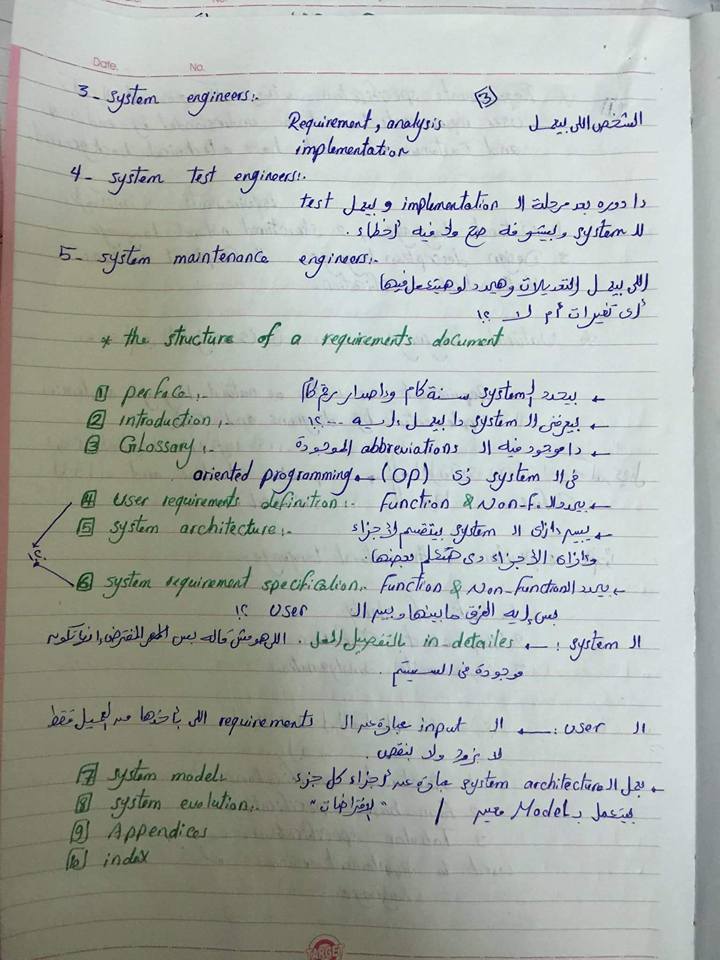 Date. No.
3- System engineers:. 3
الشخص اللى بيعمل Requirement, analysis
implementation
4- system test engineers:.
دا دوره بعد مرحلة الـ implementation و بيعمل test
للـ system وبيشوفه صح ولا فيه أخطاء.
5- system maintenance engineers:-
اللى بيعمل التعديلات وهيحدد لو هيتعمل فيها
أى تغيرات أم لا ؟!
* the structure of a requirements document
1 perface:- ← بيحدد الـ system سنة كام و إصدار رقم كام
2 introduction:- ← بيعرفنى الـ system دا بيعمل إيه ... ؟!
3 Glossary:- ← دا موجود فيه الـ abbreviations الموجودة
فى الـ system زى (OP) ← oriented programming
4 User requirements definition:- ← يحدد الـ Function & Non-f.
5 system architecture:- بيبين إزاى الـ system بيتقسم لأجزاء
وإزاى الأجزاء دى هتتكلم بعضها.
6 system requirement specification:. ← يحدد الـ Function & Non-Function
بس إيه الفرق ما بينها وبين الـ User ؟!
الـ system : ← in-detailes بالتفصيل الممل. اللى هو مش قاله بس المفترض إنها تكون
موجودة فى السيستم.
الـ user : ← الـ input عبارة عن الـ requirements اللى بأخدها من العميل فقط
لا بزود ولا بنقص.
7 system model:. ← الـ system architecture عبارة عن أجزاء كل جزء
بيتعمل بـ Model معين /
8 system evolution:. "الإفتراضات"
9 Appendices
10 index
TARGET